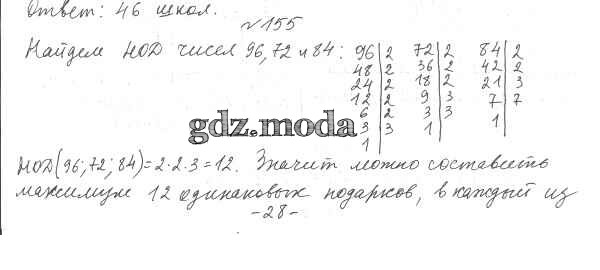 Ответ: 46 школ.
№155
Найдем НОД чисел 96, 72 и 84:
96 | 2 72 | 2 84 | 2
48 | 2 36 | 2 42 | 2
24 | 2 18 | 2 21 | 3
12 | 2 9 | 3 7 | 7
6 | 2 3 | 3 1
3 | 3 1
1
gdz.moda
НОД(96; 72; 84)=2·2·3=12. Значит можно составить
максимум 12 одинаковых подарков, в каждый из
-28-